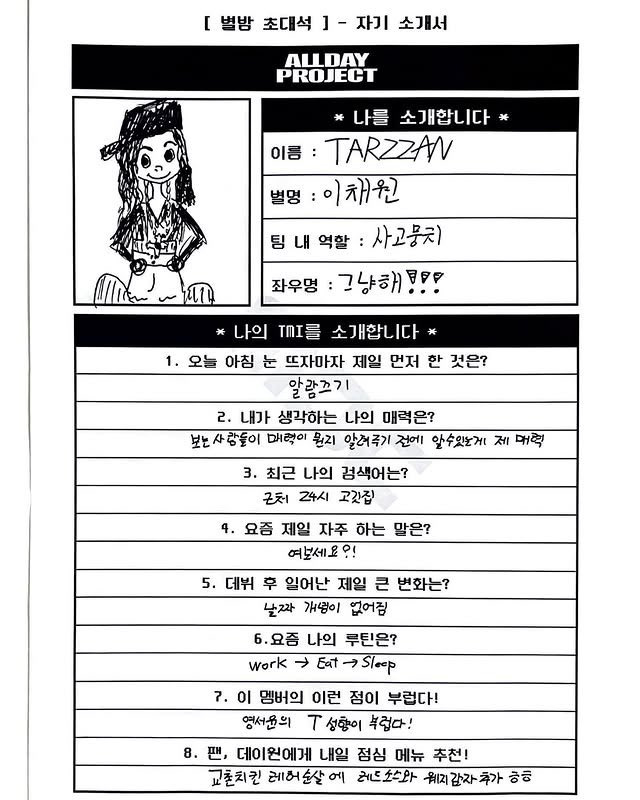 [ 별밤 초대석 ] - 자기 소개서
ALLDAY
PROJECT
* 나를 소개합니다 *
이름 : TARZZAN
별명 : 이채원
팀 내 역할 : 사고뭉치
좌우명 : 그냥해!!!
* 나의 TMI를 소개합니다 *
1. 오늘 아침 눈 뜨자마자 제일 먼저 한 것은?
알람끄기
2. 내가 생각하는 나의 매력은?
보는 사람들이 매력이 뭔지 알려주기 전에 알수있는게 제 매력
3. 최근 나의 검색어는?
근처 24시 고깃집
4. 요즘 제일 자주 하는 말은?
여보세요?!
5. 데뷔 후 일어난 제일 큰 변화는?
날짜 개념이 없어짐
6.요즘 나의 루틴은?
work → Eat → Sleep
7. 이 멤버의 이런 점이 부럽다!
영서윤의 T 성향이 부럽다!
8. 팬, 데이원에게 내일 점심 메뉴 추천!
교촌치킨 레허순살에 레드소스와 웨지감자추가 ㅎㅎ